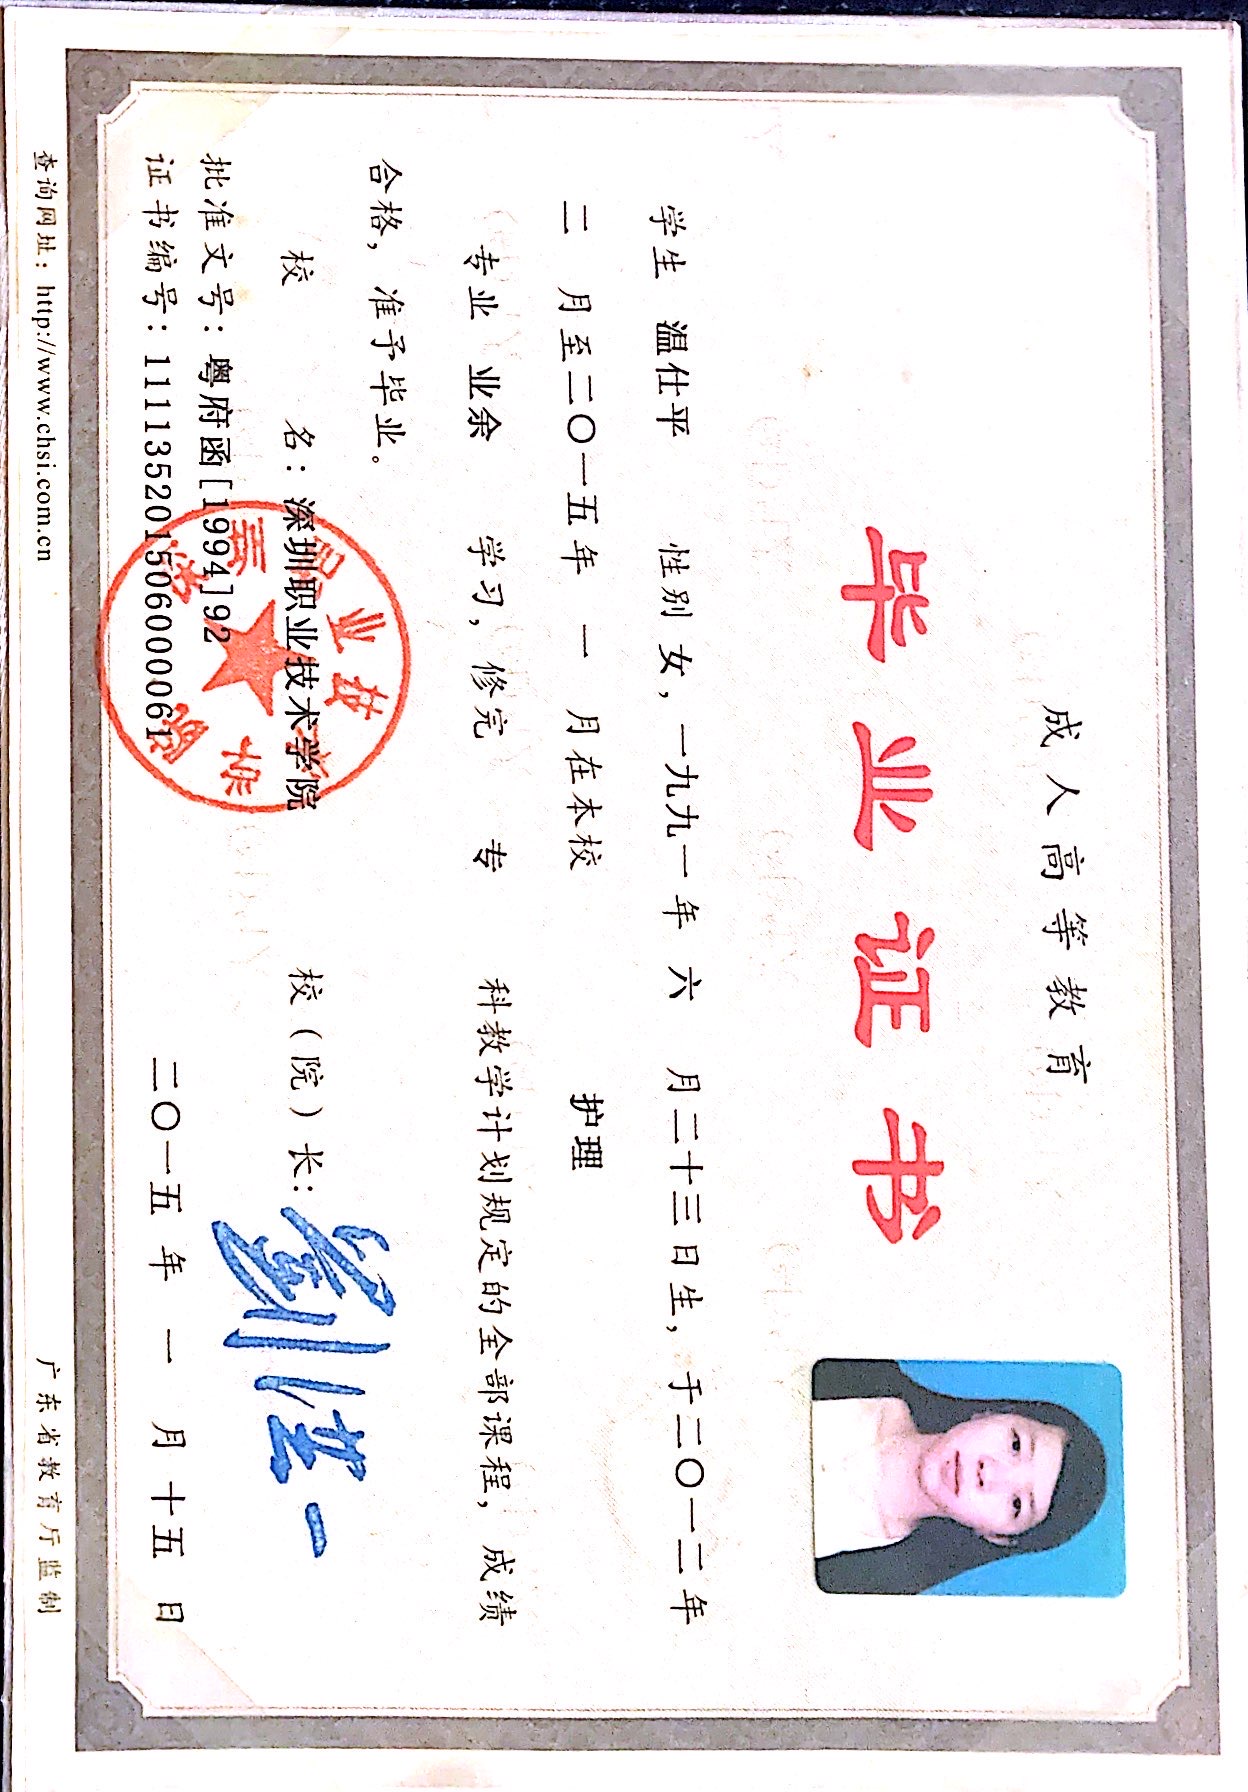 成人高等教育
毕业证书
学生 温仕平 性别 女，一九九一年 六 月二十三日生，于二〇一二年
二 月至二〇一五年 一 月在本校 护理
专业 业余 学习，修完 专 科教学计划规定的全部课程，成绩
合格，准予毕业。
校 名：深圳职业技术学院 校（院）长：
批准文号：粤府函[1994]92
证书编号：111135201506000061 二〇一五 年 一 月 十五 日
查询网址：http://www.chsi.com.cn 广东省教育厅监制